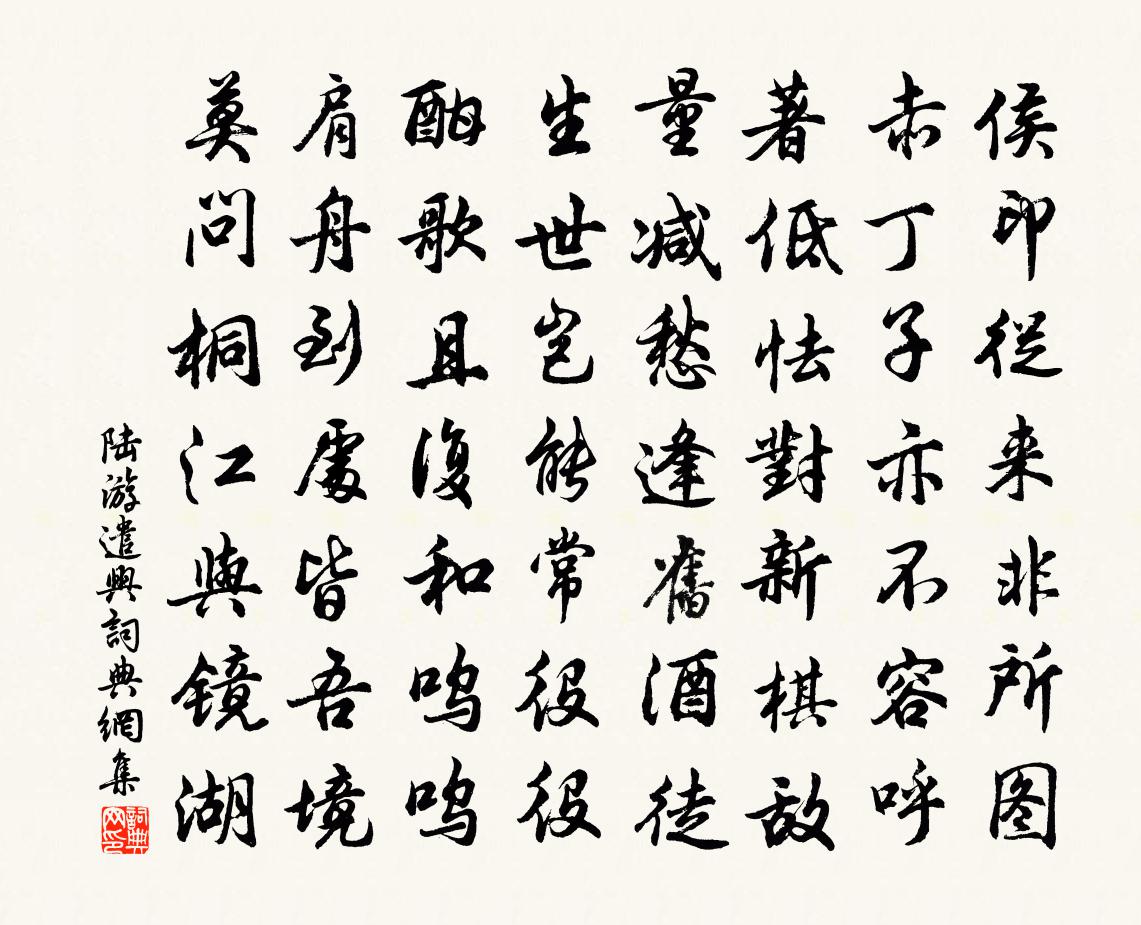 侯印從来非所图
赤丁子亦不容呼
著低怯對新棋敌
量减愁逢舊酒徒
生世岂能常役役
酣歌且復和呜呜
肩舟到處皆吾境
莫问桐江與镜湖
陆游遣興詞典網集
詞典网印